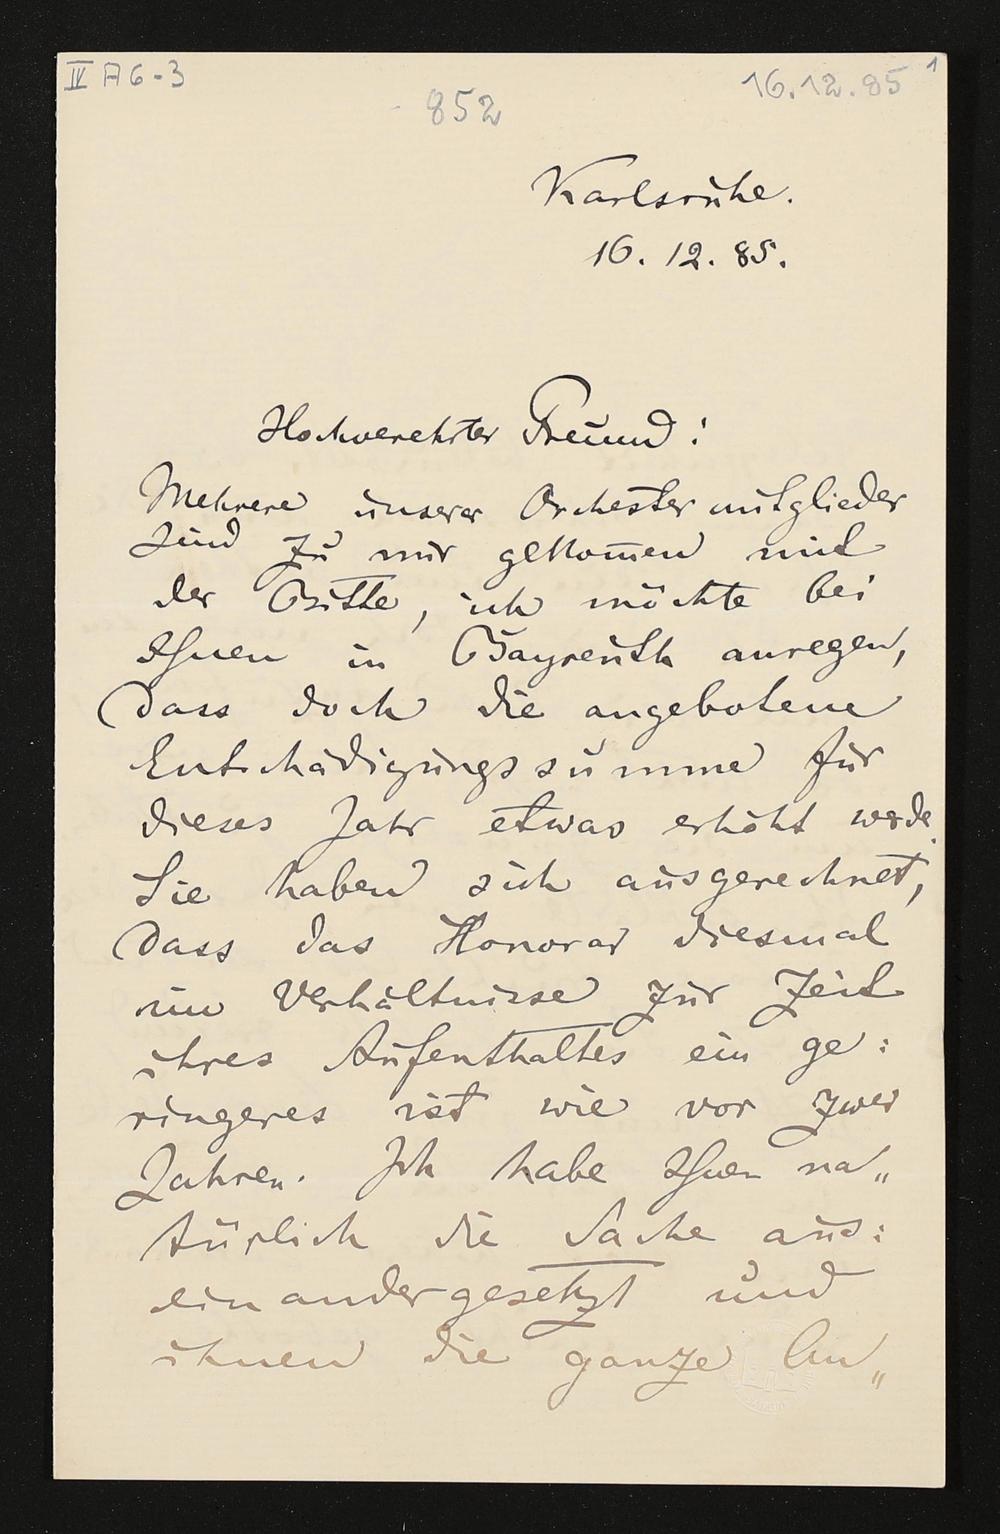 IV A 6-3
16.12.85
1
852
Karlsruhe.
16. 12. 85.
Hochverehrter Freund!
Mehrere unserer Orchestermitglieder
sind zu mir gekom̄en mit
der Bitte, ich möchte bei
Ihnen in Bayreuth anregen,
dass doch die angebotene
Entschädigungssumme für
dieses Jahr etwas erhöht werde.
Sie haben sich ausgerechnet,
dass das Honorar diesmal
im Verhältnisse zur Zeit
ihres Aufenthaltes ein ge:
ringeres ist wie vor zwei
Jahren. Ich habe Ihnen na„
türlich die Sache aus:
einandergesetzt und
ihnen die ganze An„